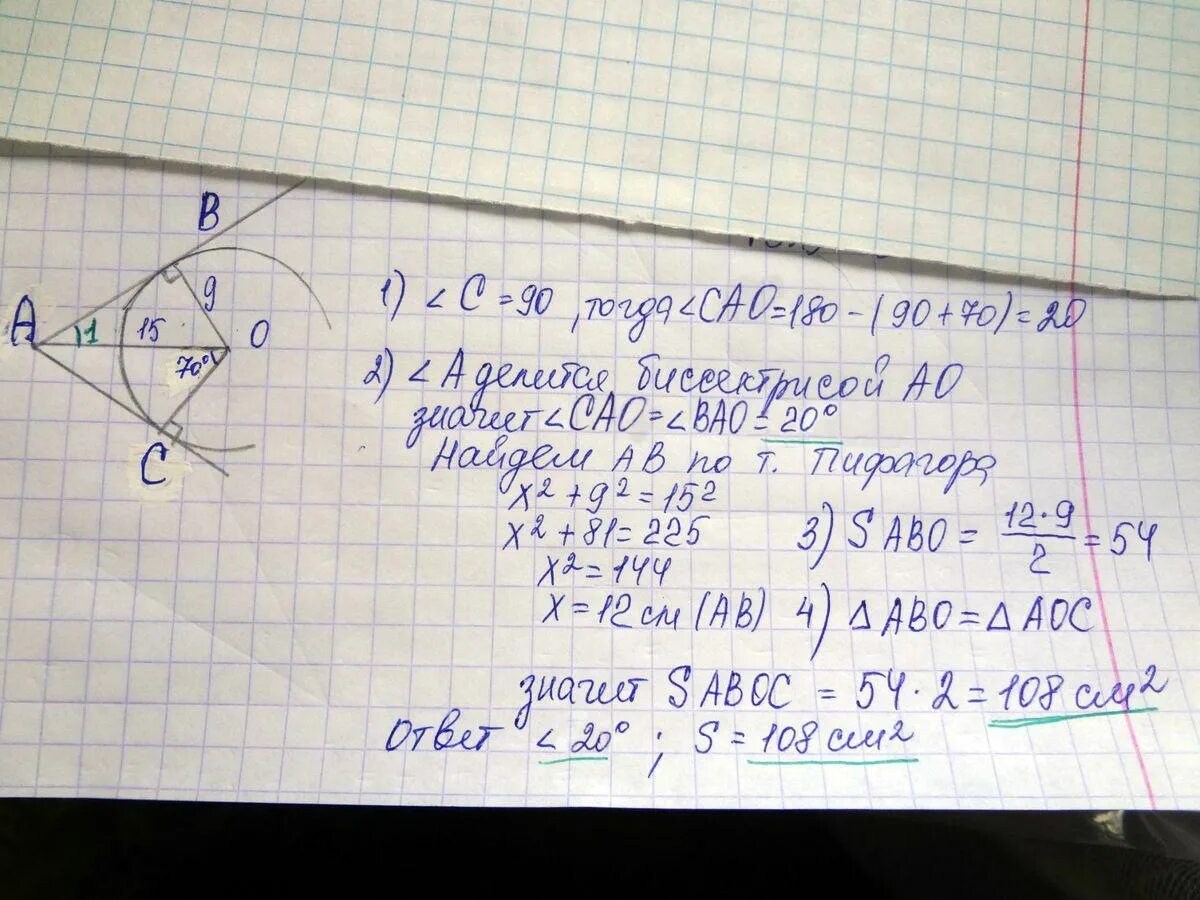 B
9
A
1
15
O
70°
C
1) ∠C = 90, тогда ∠CAO = 180 - (90 + 70) = 20
2) ∠A делится биссектрисой AO
значит ∠CAO = ∠BAO = 20°
Найдем AB по т. Пифагора
x² + 9² = 15²
x² + 81 = 225
x² = 144
x = 12 см (AB)
3) S ABO = 12·9/2 = 54
4) △ABO = △AOC
значит S ABOC = 54 · 2 = 108 см²
Ответ ∠20° ; S = 108 см²